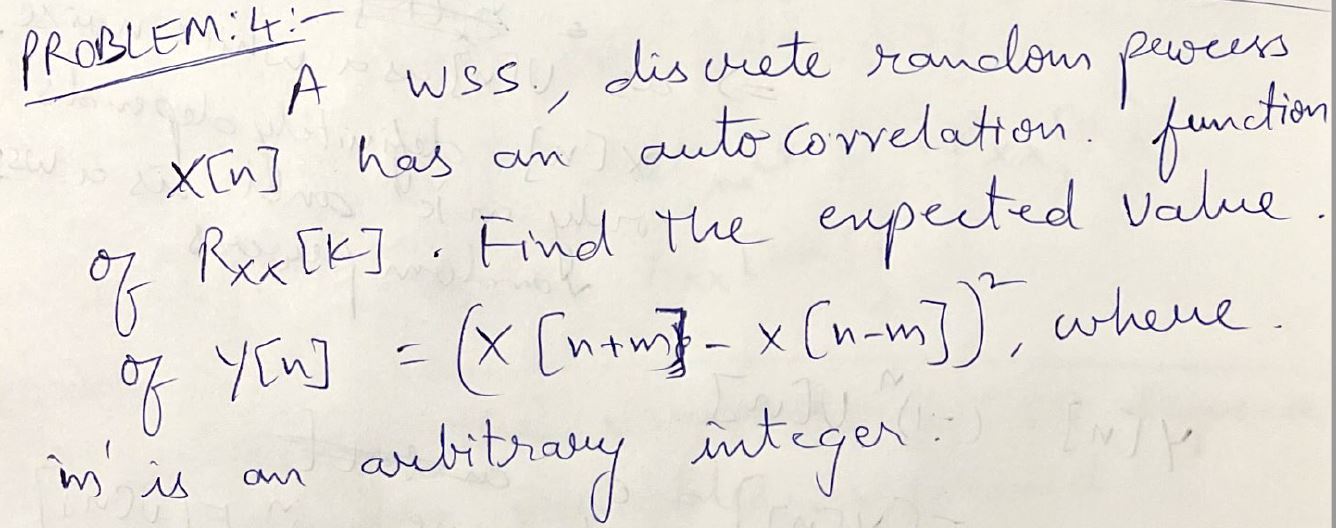 PROBLEM:4:-
A WSS., discrete random process
X[n] has an auto correlation. function
of Rxx[K]. Find the expected value.
of Y[n] = (X[n+m] - X[n-m])², where.
'm' is an arbitrary integer.